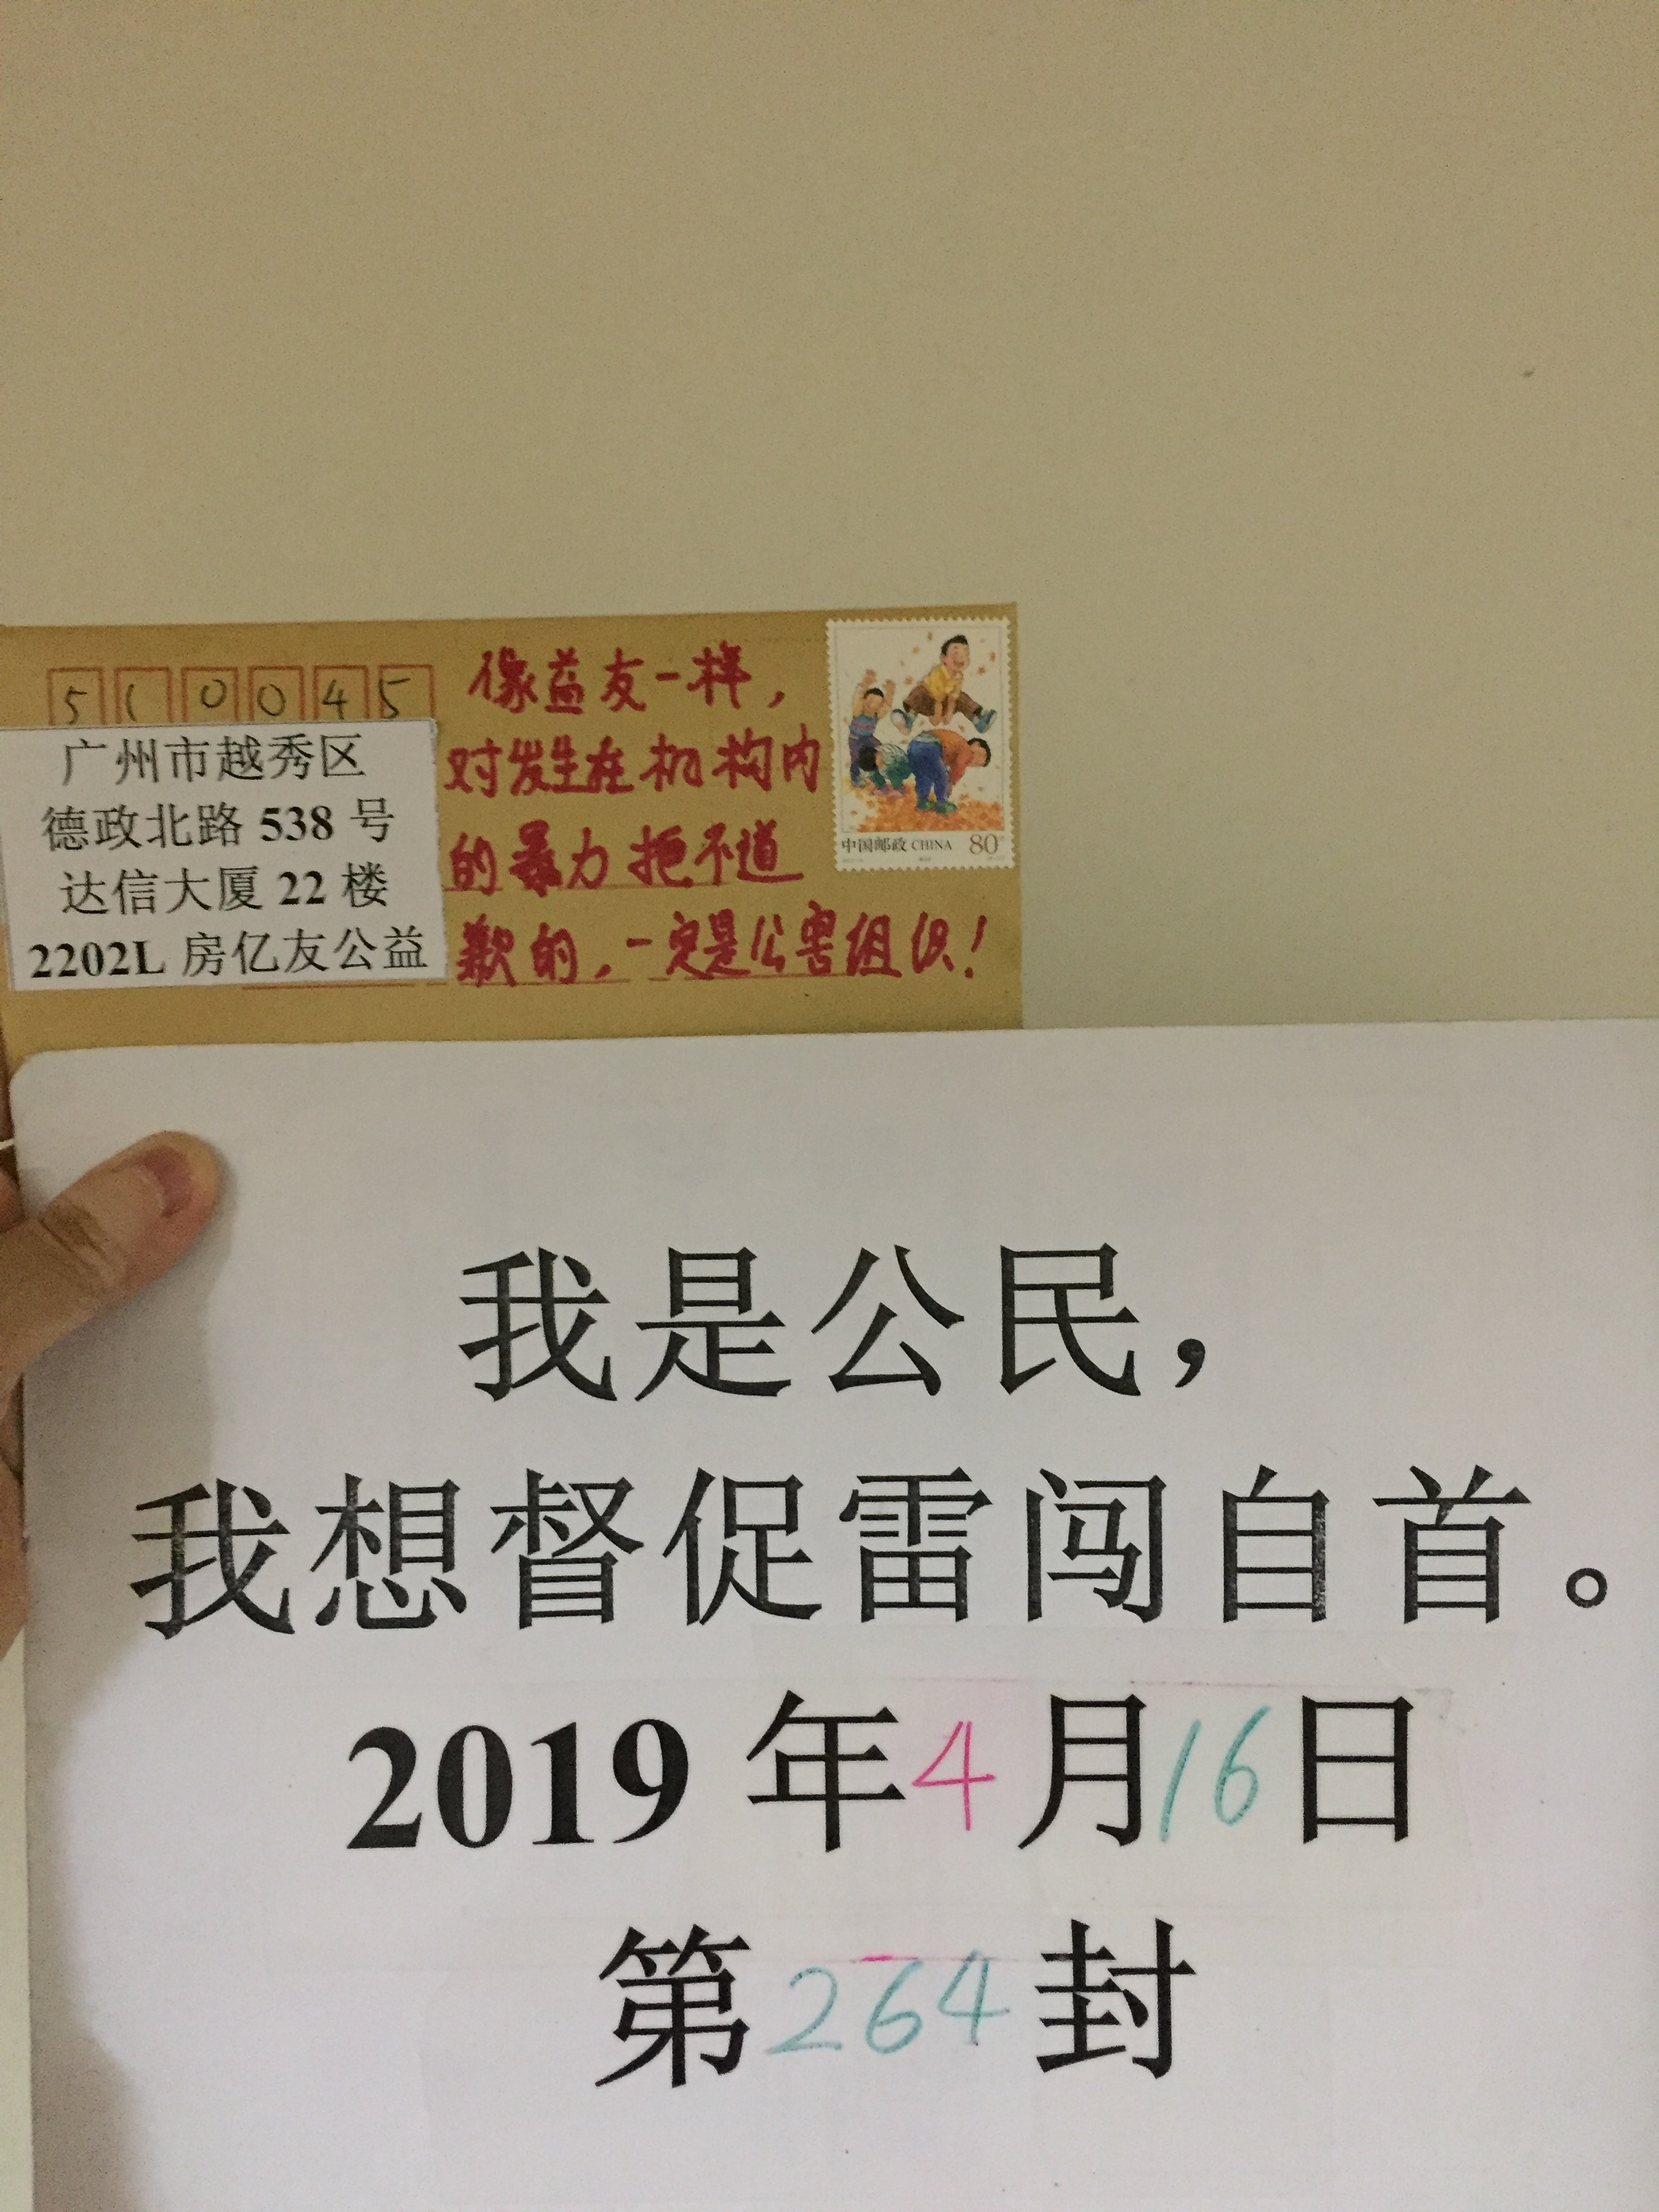 510045
广州市越秀区
德政北路 538 号
达信大厦 22 楼
2202L 房亿友公益
像益友一样，
对发生在机构内
的暴力拒不道
歉的，一定是公害组织！
中国邮政 CHINA 80
我是公民，
我想督促雷闯自首。
2019 年 4 月 16 日
第 264 封